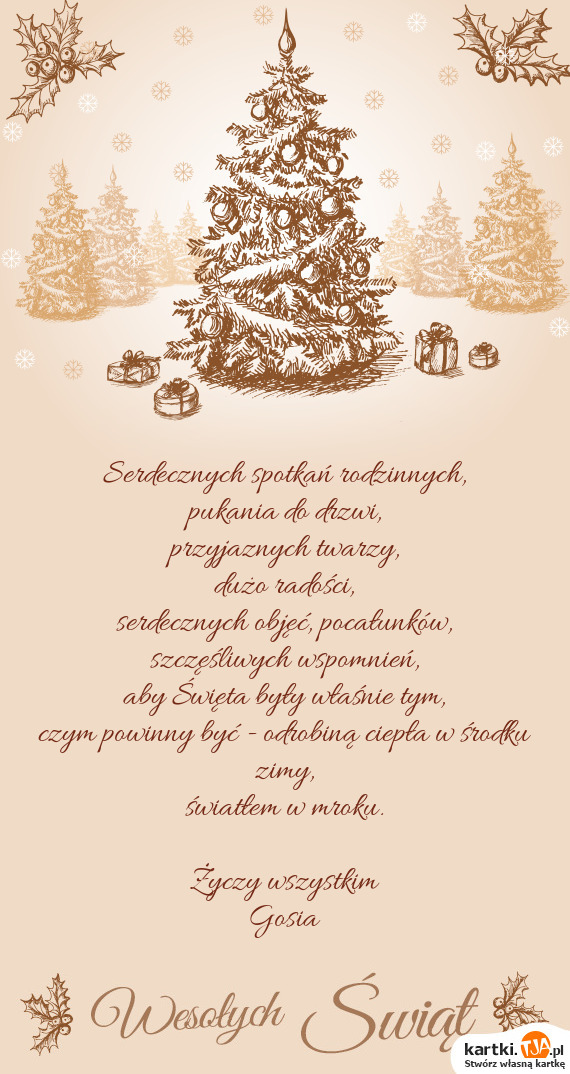 Serdecznych spotkań rodzinnych,
pukania do drzwi,
przyjaznych twarzy,
dużo radości,
serdecznych objęć, pocałunków,
szczęśliwych wspomnień,
aby Święta były właśnie tym,
czym powinny być - odrobiną ciepła w środku
zimy,
światłem w mroku.
Życzy wszystkim
Gosia
Wesołych Świąt
kartki.TJA.pl
Stwórz własną kartkę